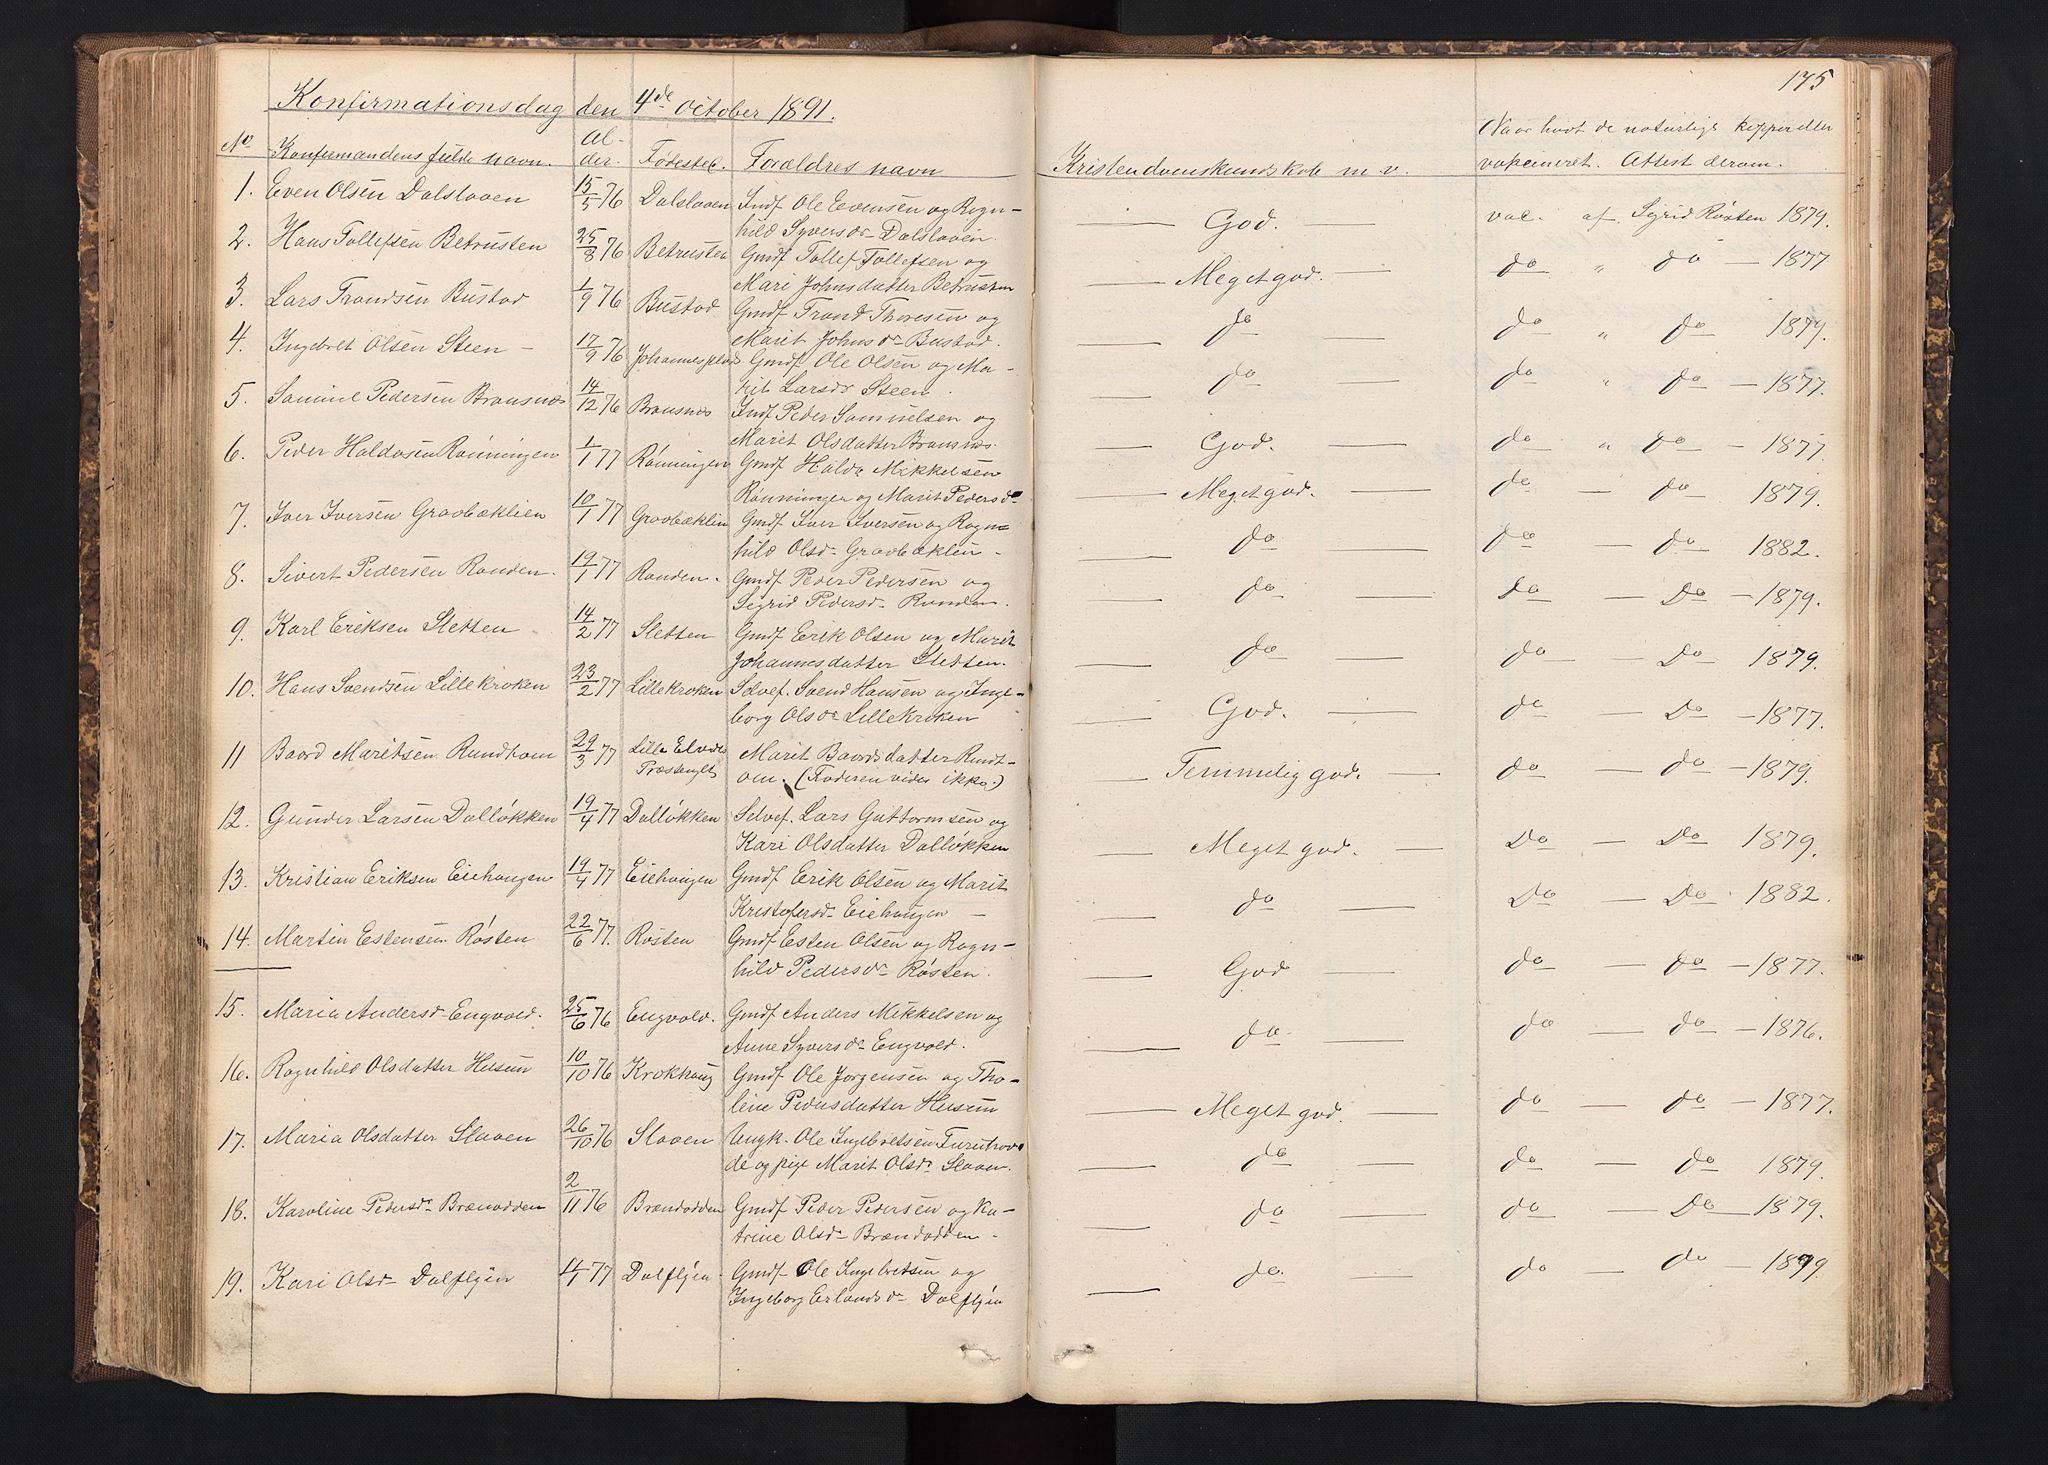 175
Konfirmationsdag den 4de October 1891.
No Konfirmandens fulde navn. Alder. Fødested. Forældres navn Kristendomskundskab m. v. Naar havt de naturlige kopper eller
vakcineret. Attest derom.
1. Even Olsen Dalslaaen 15/5 76 Dalslaaen Indf Ole Evensen og Ragn-
hild Syversdr Dalslaaen. — God. — vac. af Sigrid Røsten 1879.
2. Hans Tollefsen Betrusten 25/8 76 Betrusten Gmdf Tollef Tollefsen og
Mari Johnsdatter Betrusten — Meget god. — do " do — 1877
3. Lars Trondsen Bustad 1/9 76 Bustad Gmdf Trond Thoresen og
Marit Johnsdr Bustad. — do — do " do — 1879.
4. Ingebret Olsen Steen — 17/9 76 Johannesplads Gmdf Ole Olsen og Ma-
rit Larsdr Steen. — do — do " do — 1877.
5. Samuel Pedersen Bransnæs 14/12 76 Bransnæs Indf Peder Samuelsen og
Marit Olsdatter Bransnæs. — God. — do " do — 1877.
6. Peder Haldosen Rønningen 1/1 77 Rønningen Gmdf Haldo Mikkelsen
Rønningen og Marit Pedersdr — Meget god. — do — do — 1879.
7. Iver Iversen Graabæklien 10/1 77 Graabæklien Gmdf Iver Iversen og Ragn-
hild Olsdr Graabæklien — — do — do — do — 1882.
8. Sivert Pedersen Randen. 19/1 77 Randen. Gmdf Peder Pedersen og
Sigrid Pedersdr Randen. — do — Do — Do — 1879.
9. Karl Eriksen Sletten 14/2 77 Sletten Gmdf Erik Olsen og Marit
Johannesdatter Sletten. — do — do — Do — 1879.
10. Hans Svendsen Lillekroken 23/2 77 Lillekroken Selvef. Svend Hansen og Inge-
borg Olsdr Lillekroken — God. — do — Do — 1877.
11 Baard Maritsen Rundtom 29/3 77 Lille Elvdal
Præstegjeld Marit Baardsdatter Rundt-
om. (Faderen vides ikke) — Temmelig god. — do — do — 1879.
12. Gunder Larsen Dalløkken 19/4 77 Dalløkken Selvef. Lars Guttormsen og
Kari Olsdatter Dalløkken — Meget god. — Do — Do — 1879.
13. Kristian Eriksen Eiehaugen 19/4 77 Eiehaugen Gmdf Erik Olsen og Marit
Kristofersdr Eiehaugen — — do — Do — Do — 1882.
14. Martin Estensen Røsten 22/6 77. Røsten Gmdf Esten Olsen og Ragn-
hild Pedersdr Røsten. — God — do — do — 1877.
15. Maria Andersdr Engvold. 25/6 76 Engvold. Gmdf Anders Mikkelsen og
Anne Syversdr Engvold. — do — do — do — 1876.
16. Ragnhild Olsdatter Husum 10/10 76 Krokhaug Gmdf Ole Jørgensen og Tho-
line Pedersdatter Husum — Meget god. — do — do — 1877.
17. Maria Olsdatter Slaaen 26/10 76 Slaaen Ungk. Ole Ingebretsen Furuhov-
de og pige Marit Olsdr Slaaen. — do — do — do 1879.
18. Karoline Pedersdr Brænodden 2/11 76 Brændodden Gmdf Peder Pedersen og Ka-
trine Olsdr Brændodden — — do — do — Do — 1879.
19. Kari Olsdr Dalfljen 4/1 77 Dalfljen. Gmdf Ole Ingebretsen og
Ingeborg Erlandsdr Dalfljen — do — do — do — 1879.